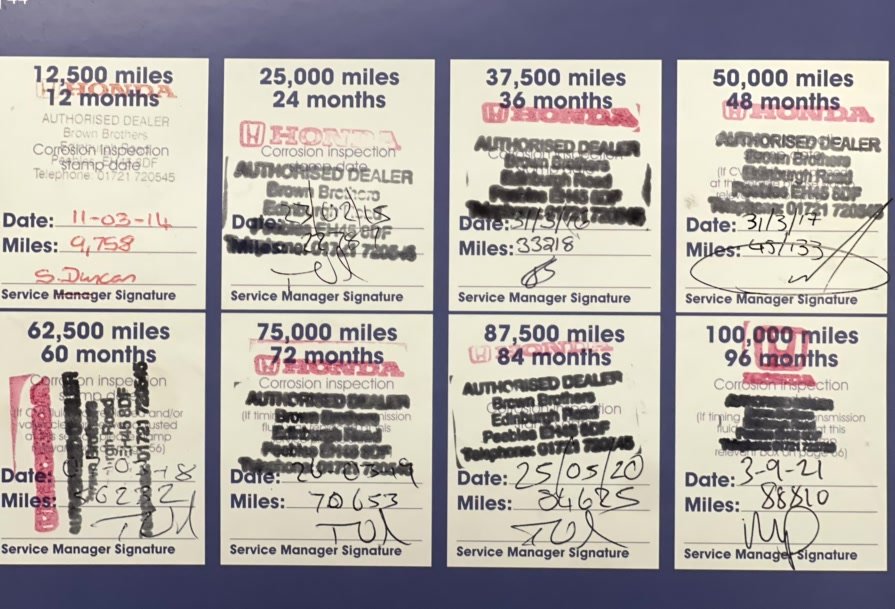 12,500 miles
12 months
HONDA
AUTHORISED DEALER
Brown Brothers
Corrosion Inspection
stamp date
Peebles EH45 8DF
Telephone: 01721 720545
Date: 11-03-14
Miles: 9,758
S. Duncan
Service Manager Signature
25,000 miles
24 months
HONDA
Corrosion inspection
AUTHORISED DEALER
Brown Brothers
EH45 8DF
01721 720545
Date:
Service Manager Signature
37,500 miles
36 months
HONDA
AUTHORISED DEALER
Brown Brothers
Edinburgh Road
Peebles EH45 8DF
01721 720545
Date:
Miles: 33218
Service Manager Signature
50,000 miles
48 months
HONDA
AUTHORISED DEALER
Brown Brothers
Edinburgh Road
Peebles EH45 8DF
01721 720545
Date: 31/3/17
Miles:
Service Manager Signature
62,500 miles
60 months
Corrosion inspection
Brown Brothers
EH45 8DF
01721 720545
Date:
Miles:
Service Manager Signature
75,000 miles
72 months
HONDA
Corrosion inspection
AUTHORISED DEALER
Brown Brothers
Edinburgh Road
Peebles EH45 8DF
01721 720545
Date:
Miles: 70653
Service Manager Signature
87,500 miles
84 months
HONDA
Corrosion inspection
AUTHORISED DEALER
Brown Brothers
Edinburgh Road
Peebles EH45 8DF
Telephone: 01721 720545
Date: 25/05/20
Miles: 84625
Service Manager Signature
100,000 miles
96 months
HONDA
Corrosion inspection
(If timing
relevant box on page 66)
Date: 3-9-21
Miles: 88810
Service Manager Signature